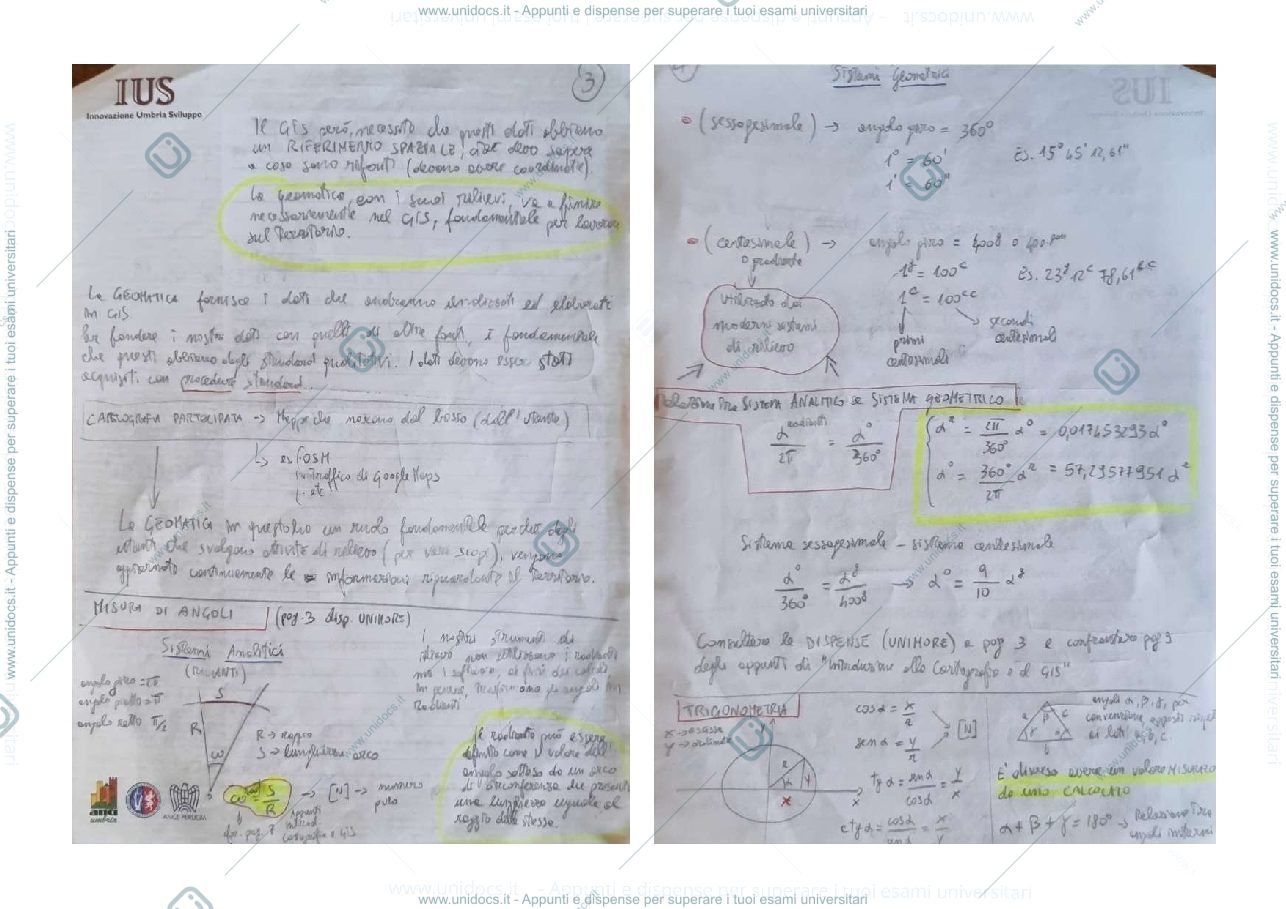 www.unidocs.it - Appunti e dispense per superare i tuoi esami universitari
IUS
Innovazione Umbria Sviluppo
3
Il GIS però, necessita che questi dati abbiano
un RIFERIMENTO SPAZIALE, cioè devo sapere
a cosa sono riferiti (devono avere coordinate)
La geomatica, con i suoi rilievi, va a finire
necessariamente nel GIS, fondamentale per lavorare
sul Territorio.
La GEOMATICA fornisce i dati che andranno analizzati ed elaborati
in GIS.
Per fondere i nostri dati con quelli di altre fonti, è fondamentale
che questi abbiano degli standard qualitativi. I dati devono essere stati
acquisiti con procedure standard.
CARTOGRAFIA PARTECIPATA -> Mappe che nascono dal basso (dall'utente)
-> es OSM
traffico di Google Maps
etc
La GEOMATICA in questo ha un ruolo fondamentale perché degli
utenti che svolgono attività di rilievo (per vari scopi), vengono
aggiornate continuamente le informazioni riguardante il Territorio.
MISURA DI ANGOLI (pag. 3 disp. UNIMORE)
Sistemi Analitici
(RADIANTI)
angolo giro = 2π
angolo piatto = π
angolo retto π/2
S
R
ω
R -> raggio
S -> lunghezza arco
I nostri strumenti di
rilievo non utilizzano i radianti
ma i software, ai fini dei calcoli,
in genere, trasformano gli angoli in
Radianti
Il radiante può essere
definito come il valore dell'
angolo sotteso da un arco
di circonferenza che presenta
una lunghezza uguale al
raggio della stessa.
ω = S/R -> [N] -> numero
puro
umbria
ANCE PERUGIA
Sistemi Geometrici
(sessagesimale) -> angolo giro = 360°
1° = 60' Es. 15° 45' 12,61"
1' = 60"
(centesimale) -> angolo giro = 400g o 400 gon
o gradiente
1g = 100c Es. 23g 12c 78,61cc
1c = 100cc
primi
centesimali
secondi
centesimali
Utilizzato dai
moderni sistemi
di rilievo
Relazione tra SISTEMA ANALITICO e SISTEMA GEOMETRICO
α radianti / 2π = α° / 360°
α^r = 2π/360° α° = 0,017453293 α°
α° = 360°/2π α^r = 57,29577951 α^r
Sistema sessagesimale - sistema centesimale
α°/360° = αg/400g -> α° = 9/10 αg
Consultare le DISPENSE (UNIMORE) a pag 3 e confrontare pag 3
degli appunti di "Introduzione alla Cartografia e al GIS"
TRIGONOMETRIA
x -> ascissa
y -> ordinata
cos α = x/r
sen α = y/r
[N]
tg α = sen α / cos α = y/x
ctg α = cos α / sen α = x/y
angoli α, β, γ, per
convenzione, opposti rispetto
ai lati a, b, c.
È diverso avere un valore MISURATO
da uno CALCOLATO
α + β + γ = 180° -> Relazione tra
angoli interni
www.unidocs.it - Appunti e dispense per superare i tuoi esami universitari